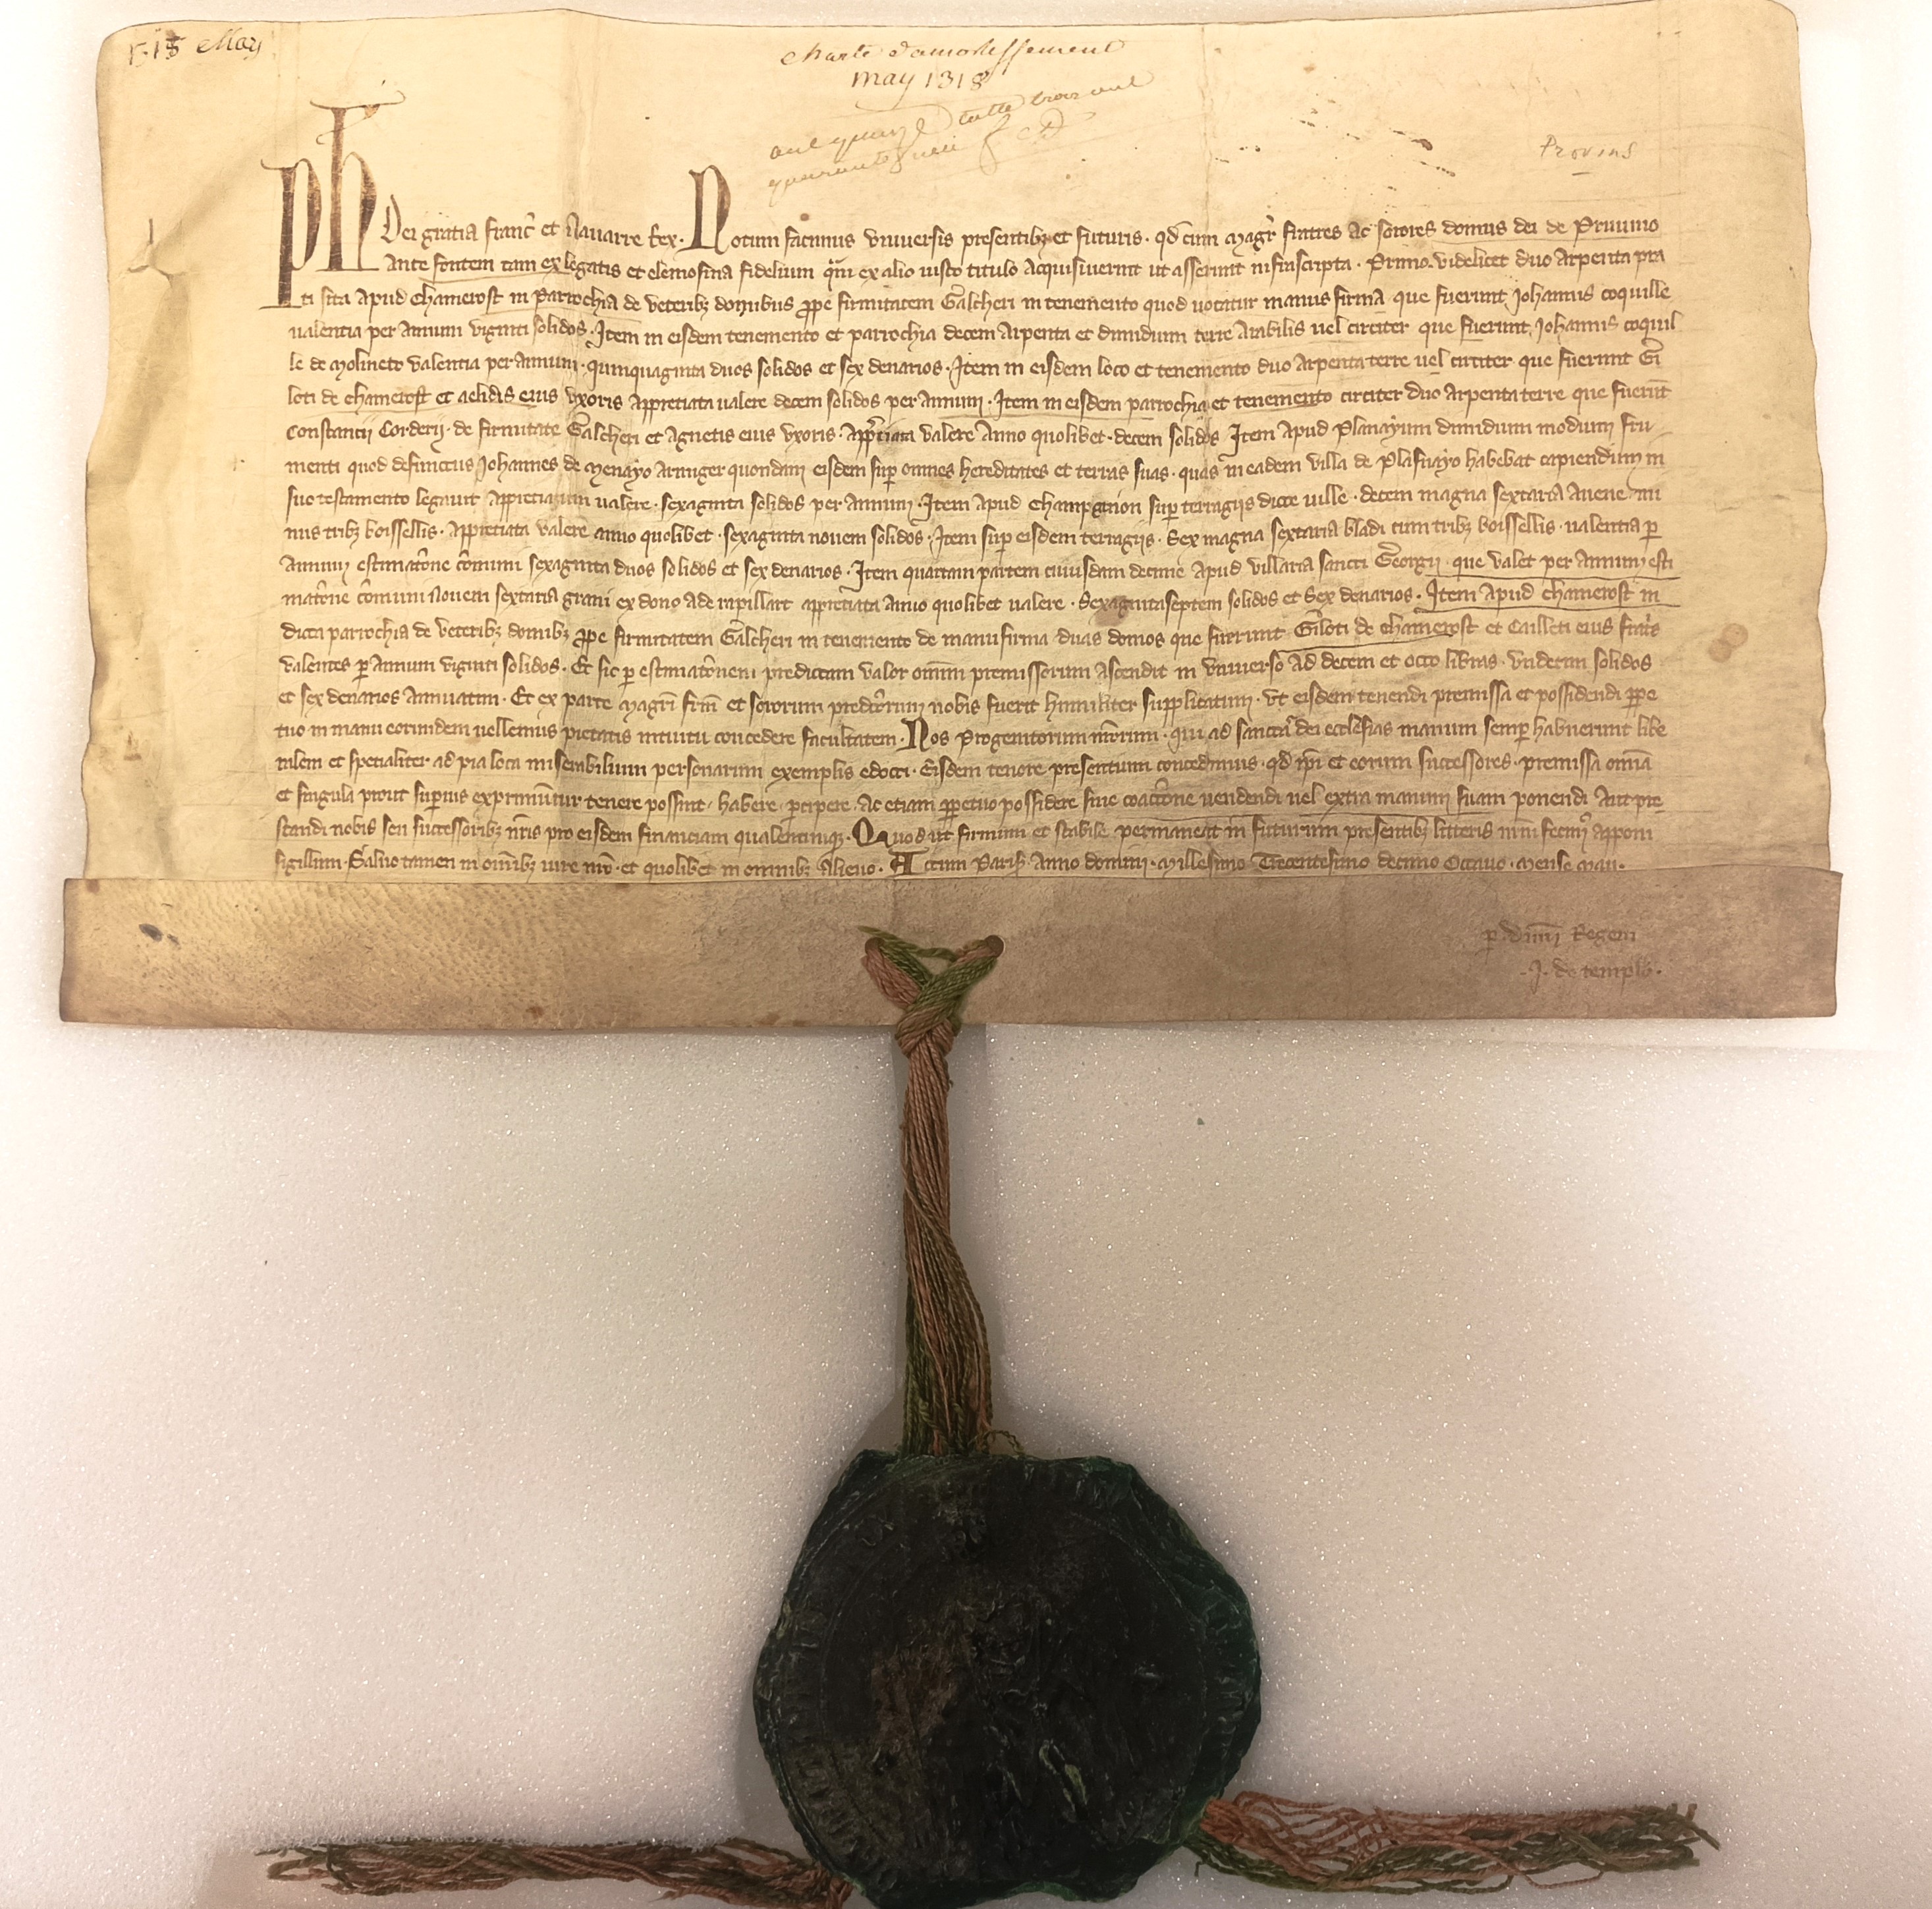 1318 May
Charte d'amortissement
may 1318
Provins
Ph Dei gratia Franc̄ et Nauarre Rex. Notum facimus vniuersis presentibꝫ et futuris. qd̄ cum Magr̄ fratres ac sorores domus dei de Pruuino
ante fontem tam ex legatis et elemosina fidelium qm̄ ex alio iusto titulo acquisiuerint ut asserunt infrascripta. Primo. videlicet duo arpenta pra
ti sita apud Chamerost in Parrochia de veteribꝫ domibus ꝓpe firmitatem Galcheri in tenemento quod vocatur manus firma que fuerunt Johannis coquille
valentia per annum viginti solidos. Item in eisdem tenemento et parrochia decem arpenta et dimidium terre arabilis uel circiter que fuerunt Johannis coquil
le de Molineto valentia per annum. quinquaginta duos solidos et sex denarios. Item in eisdem loco et tenemento duo arpenta terre uel circiter que fuerunt Gi
loti de Chamerost et aelidis eius vxoris appretiata valere decem solidos per annum. Item in eisdem parrochia et tenemento circiter duo arpenta terre que fuerūt
Constancii Corderij. de firmitate Galcheri et Agnetis eius vxoris. app̄tiata valere Anno quolibet. decem solidos Item apud Planayum dimidium modium fru
menti quod defunctus Johannes de Menayo armiger quondam eisdem suꝑ omnes hereditates et terras suas. quas in eadem villa de Plasnayo habebat capiendum in
suo testamento legauit appretiatum valere. sexaginta solidos per annum. Item apud Champguion suꝑ terragijs dicte ville. decem magna sextaria auene mi
nus tribꝫ boissellis. appretiata valere anno quolibet. sexaginta nouem solidos. Item suꝑ eisdem terragijs. Sex magna sextaria bladi cum tribꝫ boissellis. valentia ꝑ
annum estimat̄one c̄omuni sexaginta duos solidos et sex denarios. Item quartam partem cuiusdam decime apud villaria sancti Georgij. que valet per annum esti
mat̄one c̄omuni nouem sextaria grani ex dono ade rapillart appretiata anno quolibet valere. Sexagintaseptem solidos et sex denarios. Item apud Chamerost in
dicta parrochia de veteribꝫ domibꝫ ꝓpe firmitatem Galcheri in tenemento de manu firma duas domos que fuerunt Giloti de Chamerost et Cailleti eius fratris
valentes ꝑ annum viginti solidos. Et sic ꝑ estimat̄onem predictam valor omīm premissorum ascendit in vniuerso ad decem et octo libras. vndecim solidos
et sex denarios annuatim. Et ex parte Magr̄i fr̄m et sororum predc̄orum nobis fuerit humiliter supplicatum. vt eisdem tenendi premissa et possidendi ꝑpe
tuo in manu eorumdem uellemus pietatis intuitu concedere facultatem. Nos Progenitorum nr̄orum. qui ad sanctā dei ecclesias manum semꝑ habuerunt libe
ralem et specialiter ad pia loca miserabilium personarum exemplis edocti. Eisdem tenore presentium concedimus. qd̄ ip̄i et eorum successores. premissa omīa
et singula prout suꝑius exprimūtur tenere possint. habere. ꝑcipere. ac etiam ꝑpetuo possidere sine coacc̄one vendendi uel extra manum suam ponendi aut pre
standi nobis seu successoribꝫ nr̄is pro eisdem financiam qualemcunqꝫ. Quod ut firmum et stabile permaneat in futurum presentibꝫ litteris nr̄m fecimꝰ apponi
sigillum. Saluo tamen in om̄ibꝫ iure nr̄o. et quolibet in omnibꝫ alieno. Actum Parisꝰ Anno domini. Millesimo Trecentesimo decimo Octauo. Mense Maii.
ꝑ. Dn̄m Regem
.J. de templo.